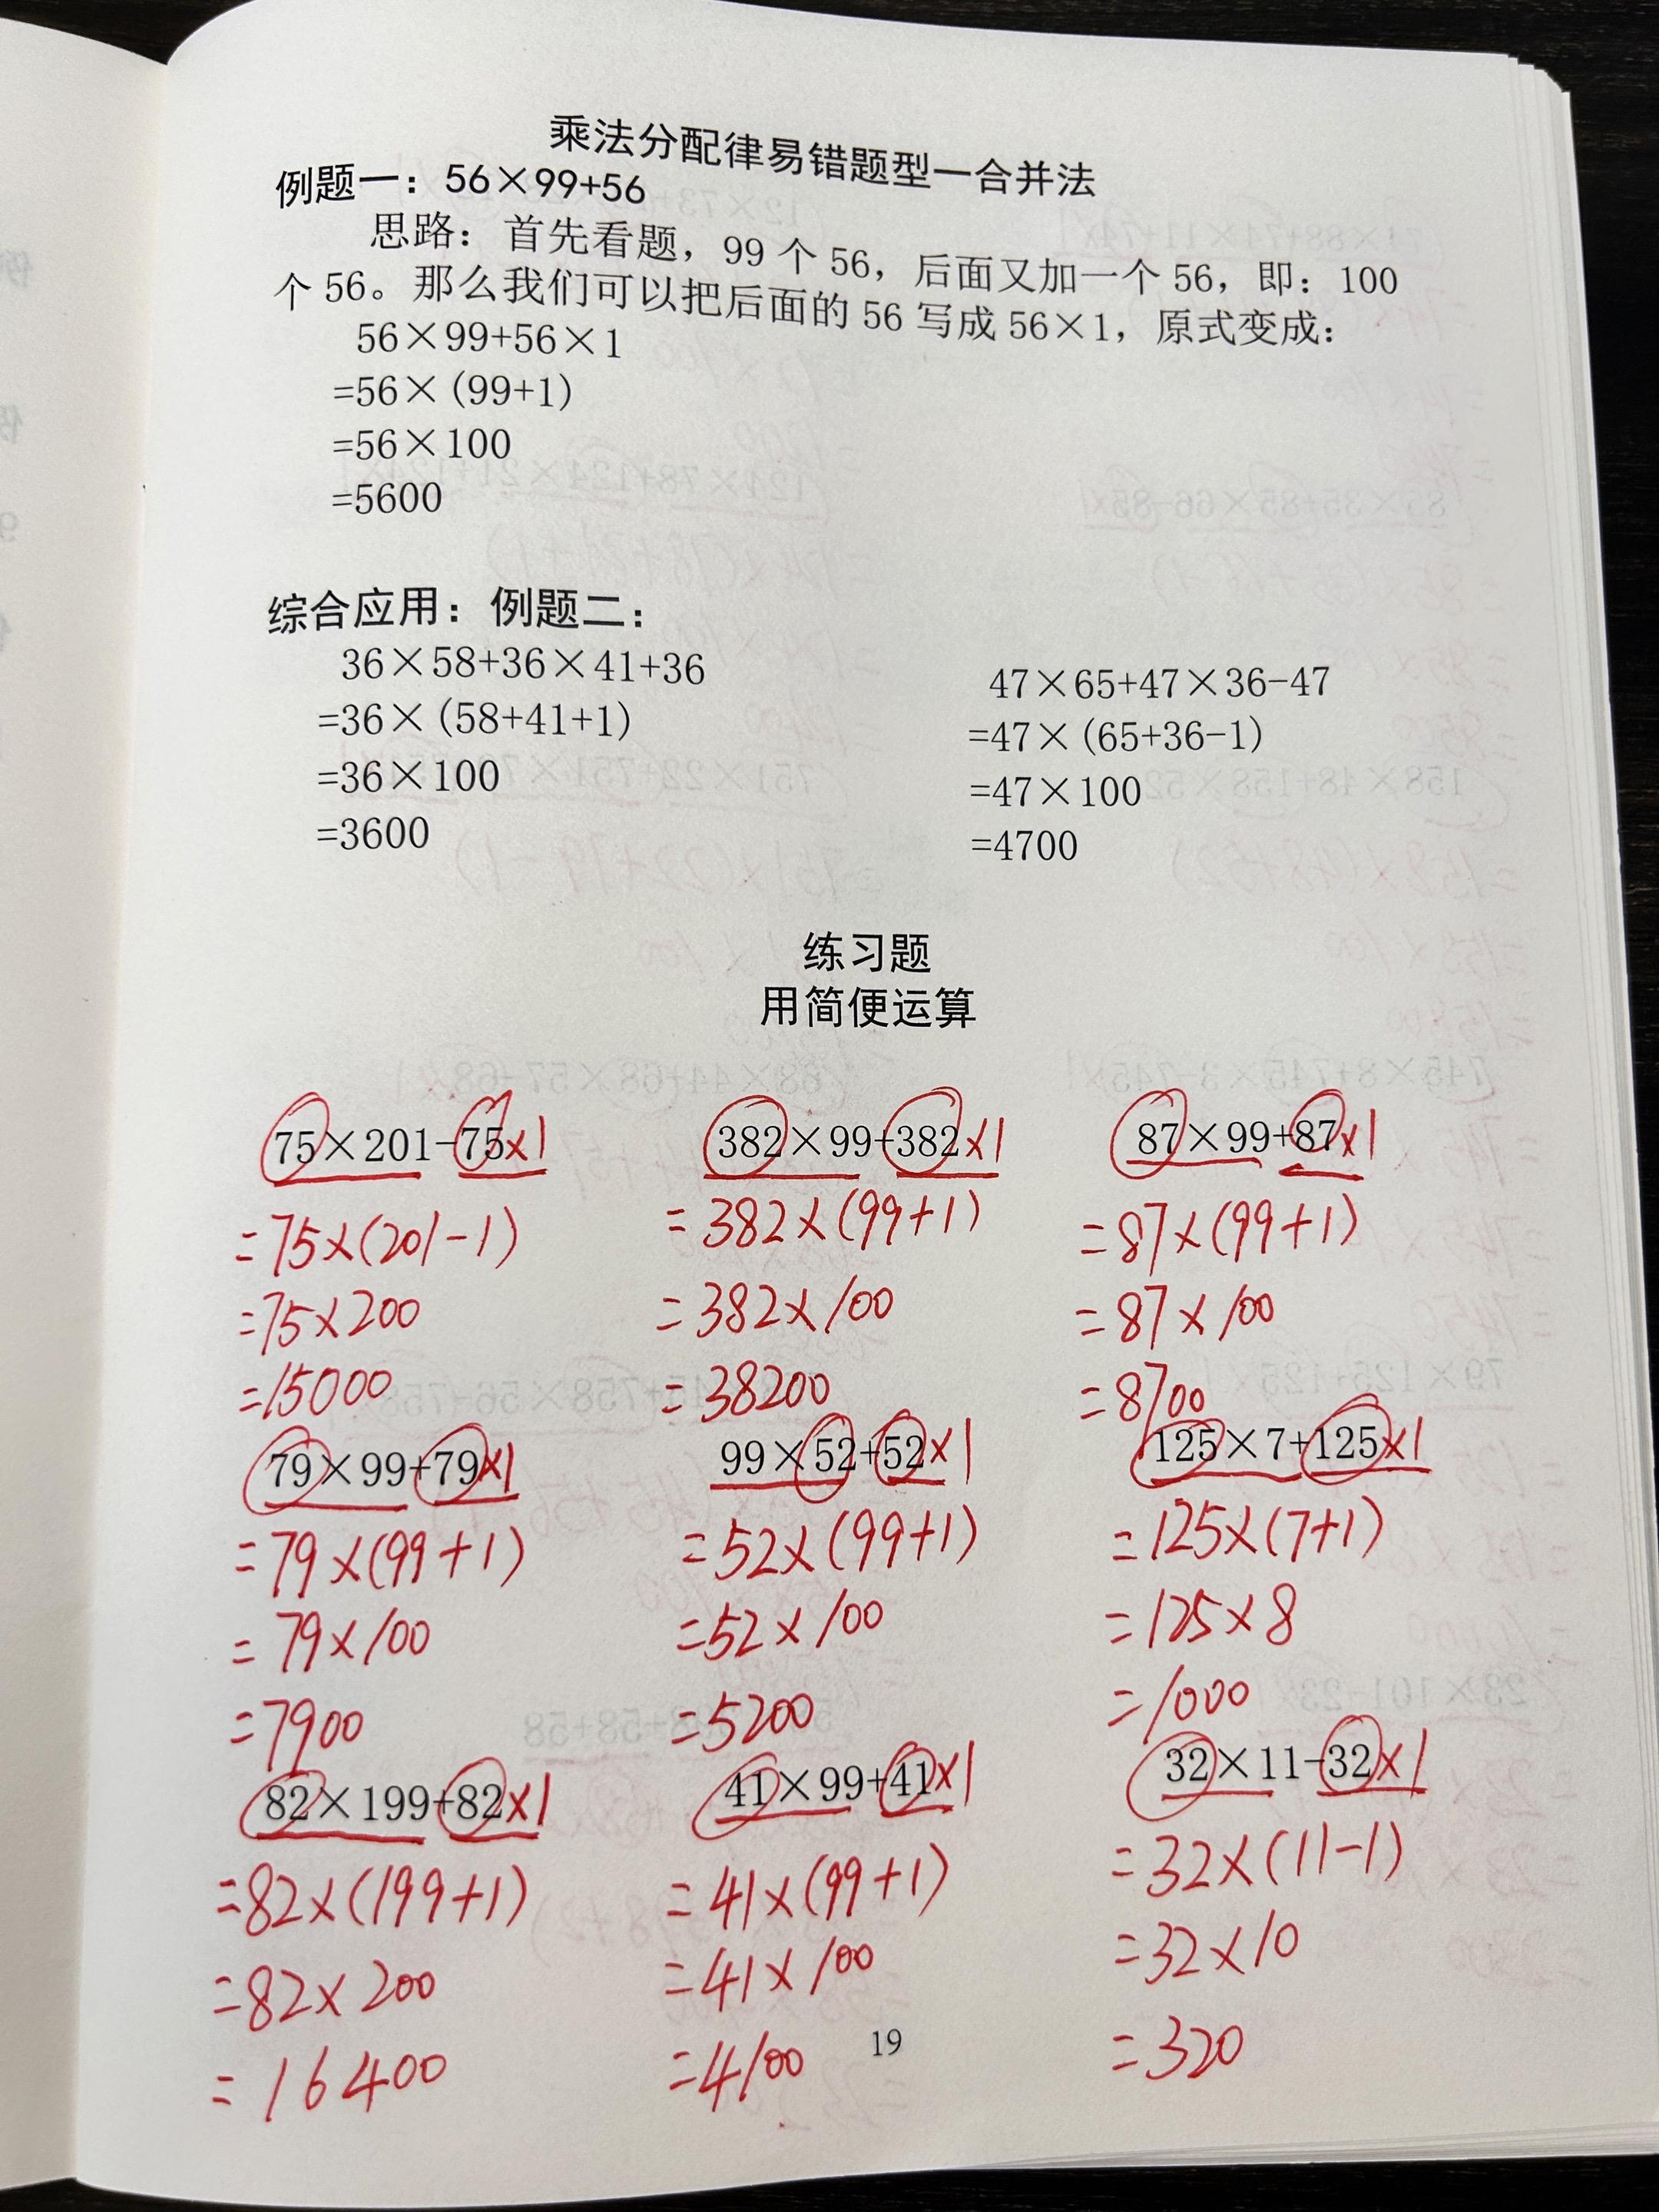 乘法分配律易错题型一合并法
例题一：56×99+56
思路：首先看题，99个56，后面又加一个56，即：100
个56。那么我们可以把后面的56写成56×1，原式变成：
56×99+56×1
=56×(99+1)
=56×100
=5600
综合应用：例题二：
36×58+36×41+36
=36×(58+41+1)
=36×100
=3600
47×65+47×36-47
=47×(65+36-1)
=47×100
=4700
练习题
用简便运算
75×201-75×1
=75×(201-1)
=75×200
=15000
382×99+382×1
=382×(99+1)
=382×100
=38200
87×99+87×1
=87×(99+1)
=87×100
=8700
79×99+79×1
=79×(99+1)
=79×100
=7900
99×52+52×1
=52×(99+1)
=52×100
=5200
125×7+125×1
=125×(7+1)
=125×8
=1000
82×199+82×1
=82×(199+1)
=82×200
=16400
41×99+41×1
=41×(99+1)
=41×100
=4100
32×11-32×1
=32×(11-1)
=32×10
=320
19